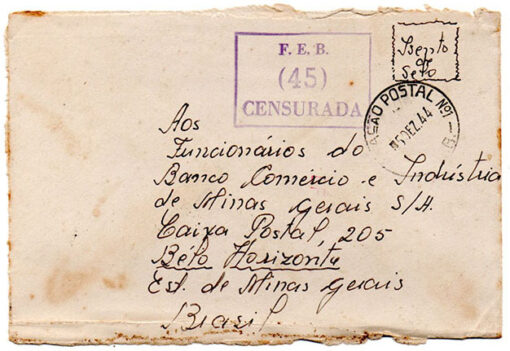 F. E. B.
(45)
CENSURADA
Isento
de
Selo
POSTAL Nº1
DEZ.44
Aos
Funcionários do
Banco Comércio e Indústria
de Minas Gerais S/A.
Caixa Postal, 205
Bélo Horizonte
Est. de Minas Gerais
Brasil.